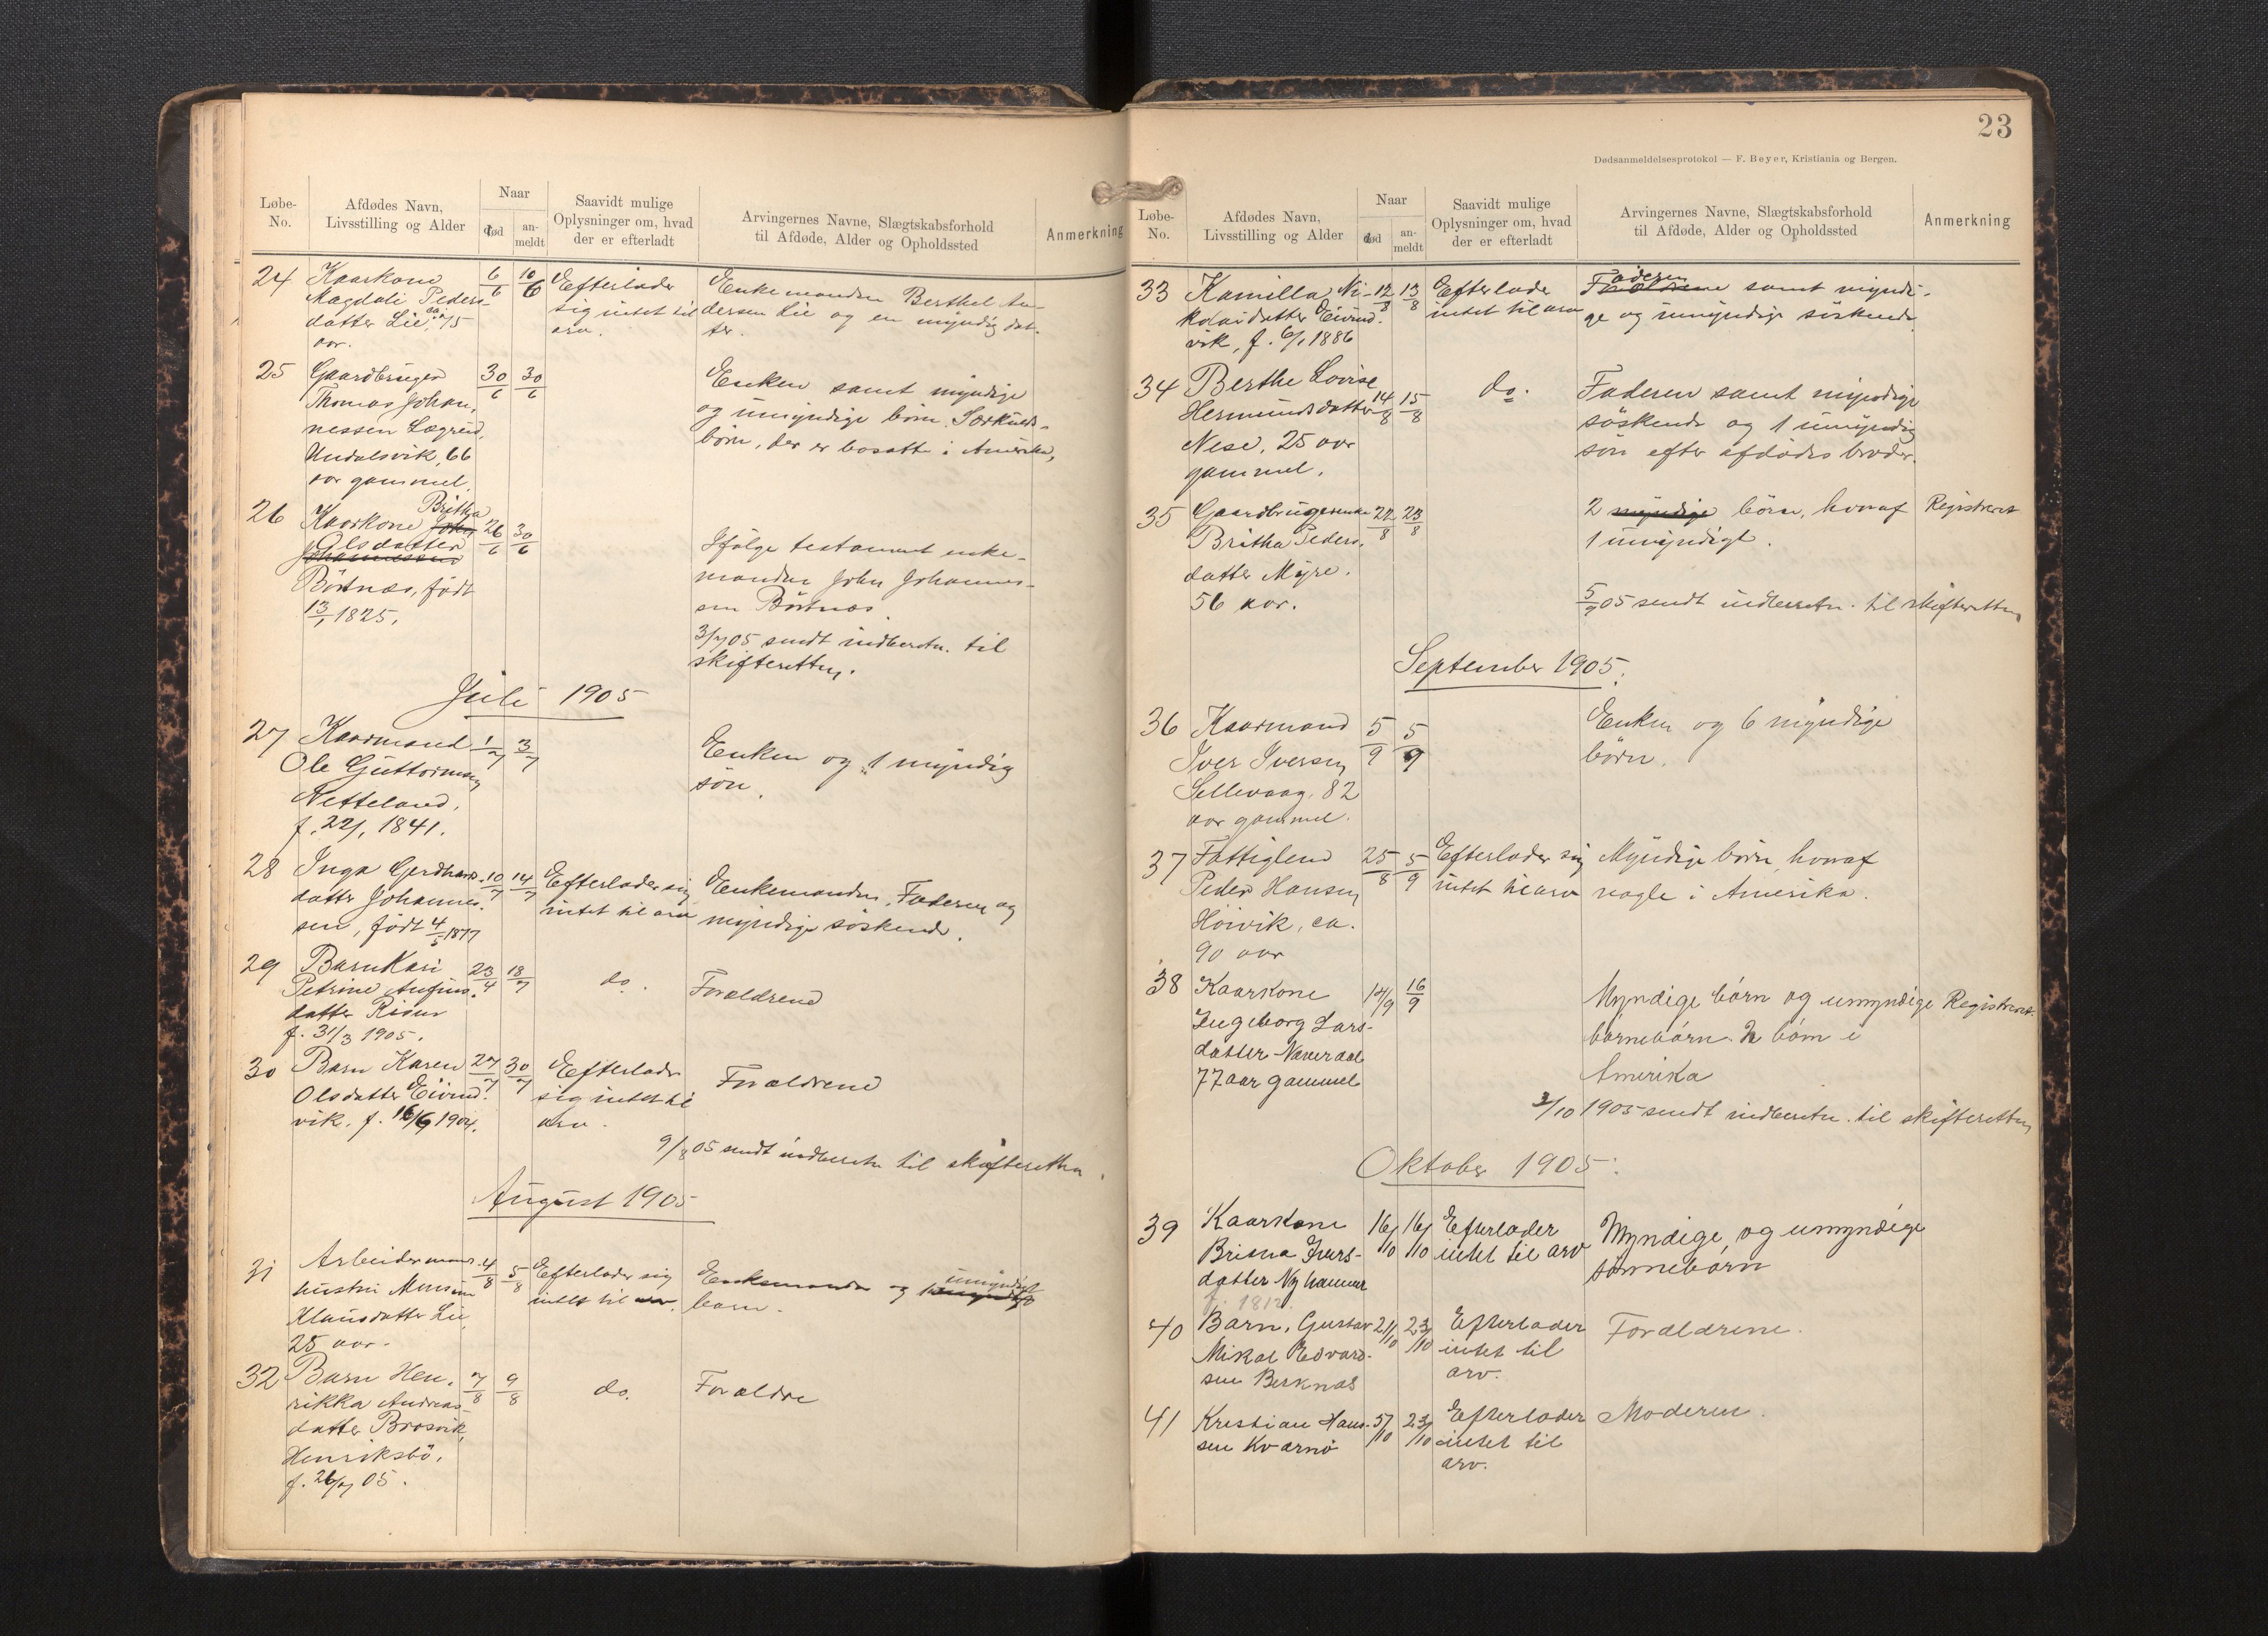 Løbe-
No.
Afdødes Navn,
Livsstilling og Alder
Naar
død
an-
meldt
Saavidt mulige
Oplysninger om, hvad
der er efterladt
Arvingernes Navne, Slægtskabsforhold
til Afdøde, Alder og Opholdssted
Anmerkning
24 Kaarkone 6/6 10/6 Efterlader Enkemanden Berthel An-
Magdali Peders- sig intet til dersen Lie og en myndig dat-
datter Lie, ca. 75 arv. ter.
aar.
25 Gaardbruger 30/6 30/6 Enken samt myndige
Thomas Johan- og umyndige börn. Særkuld-
nessen Lægreid, börn, der er bosatte i Amerika,
Undalsvik, 66
aar gammel.
26 Kaarkone Britha 26/6 30/6
Olsdatter Ifölge testament enke-
Johannessen manden John Johannes-
Börtnæs, född sen Börtnæs
13/1 1825. 3/7 05 sendt indberetn. til
skifteretten.
Juli 1905
27 Kaarmand 1/7 3/7 Enken og 1 myndig
Ole Guttormsen sön.
Netteland,
f. 22/1 1841.
28 Inga Gerdhards- 10/7 14/7 Efterlader sig Enkemanden, Faderen og
datter Johannes- intet til arv myndige söskende.
sen, född 4/5 1877
29 Barn Kari 23/4 18/7 do. Forældrene
Petrine Anfins-
datter Risnes
f. 31/3 1905.
30 Barn Karen 27/7 30/7 Efterlader Forældrene
Olsdatter Eivind- sig intet til
vik. f. 16/6 1904. arv.
9/8 05 sendt indberetn til skifteretten.
August 1905
31 Arbeidermands- 4/8 5/8 Efterlader sig Enkemanden og 1 umyndigt
hustru Monsine intet til arv. barn.
Klausdatter Lie,
25 aar.
32 Barn Hen- 7/8 9/8 do. Forældre
rikka Andreas-
datter Brosvik,
Henriksbö,
f. 26/7 05.
23
Dødsanmeldelsesprotokol — F. Beyer, Kristiania og Bergen.
Løbe-
No.
Afdødes Navn,
Livsstilling og Alder
Naar
død
an-
meldt
Saavidt mulige
Oplysninger om, hvad
der er efterladt
Arvingernes Navne, Slægtskabsforhold
til Afdøde, Alder og Opholdssted
Anmerkning
33 Kamilla Ni- 12/8 13/8 Efterlader Faderen samt myndi-
kolaidatter Eivind- intet til arv ge og umyndige söskende
vik, f. 6/1 1886
34 Berthe Lovise 14/8 15/8 do. Faderen samt myndige
Hermundsdatter söskende og 1 umyndig
Nese, 25 aar sön efter afdödes broder.
gammel.
35 Gaardbrugerenke 22/8 23/8 2 myndige börn, hvoraf Registreret
Britha Peders- 1 umyndigt.
datter Myre.
56 aar. 5/9 05 sendt indberetn. til skifteretten
September 1905.
36 Kaarmand 5/9 5/9 Enken og 6 myndige
Iver Iversen börn.
Sellevaag, 82
aar gammel.
37 Fattiglem 25/8 5/9 Efterlader sig Myndige börn, hvoraf
Peder Hansen intet til arv nogle i Amerika.
Höivik, ca.
90 aar
38 Kaarkone 14/9 16/9 Myndige börn og umyndige Registreret.
Ingeborg Lars- börnebörn. 2 börn i
datter Naveraal Amerika
77 aar gammel
3/10 1905 sendt indberetn. til skifteretten
Oktober 1905.
39 Kaarkone 16/10 16/10 Efterlader Myndige og umyndige
Brisna Ivers- intet til arv sönnebörn
datter Nyhammer
f. 1812.
40 Barn, Gustav 21/10 23/10 Efterlader Forældrene.
Mikal Edvard- intet til
sen Berknæs arv.
41 Kristian Han- 5/10 23/10 Efterlader Moderen.
sen Kværnö intet til
arv.